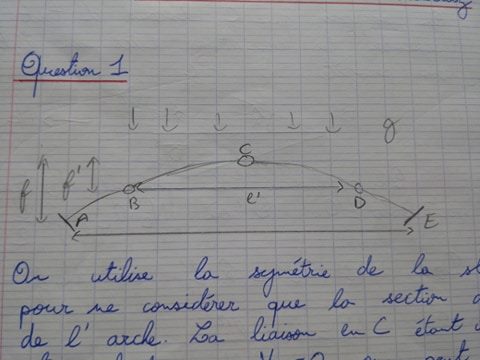 Question 1
g
C
f
f'
A
B
l'
D
E
On utilise la symétrie de la
pour ne considérer que la section
de l'arche. La liaison en C étant